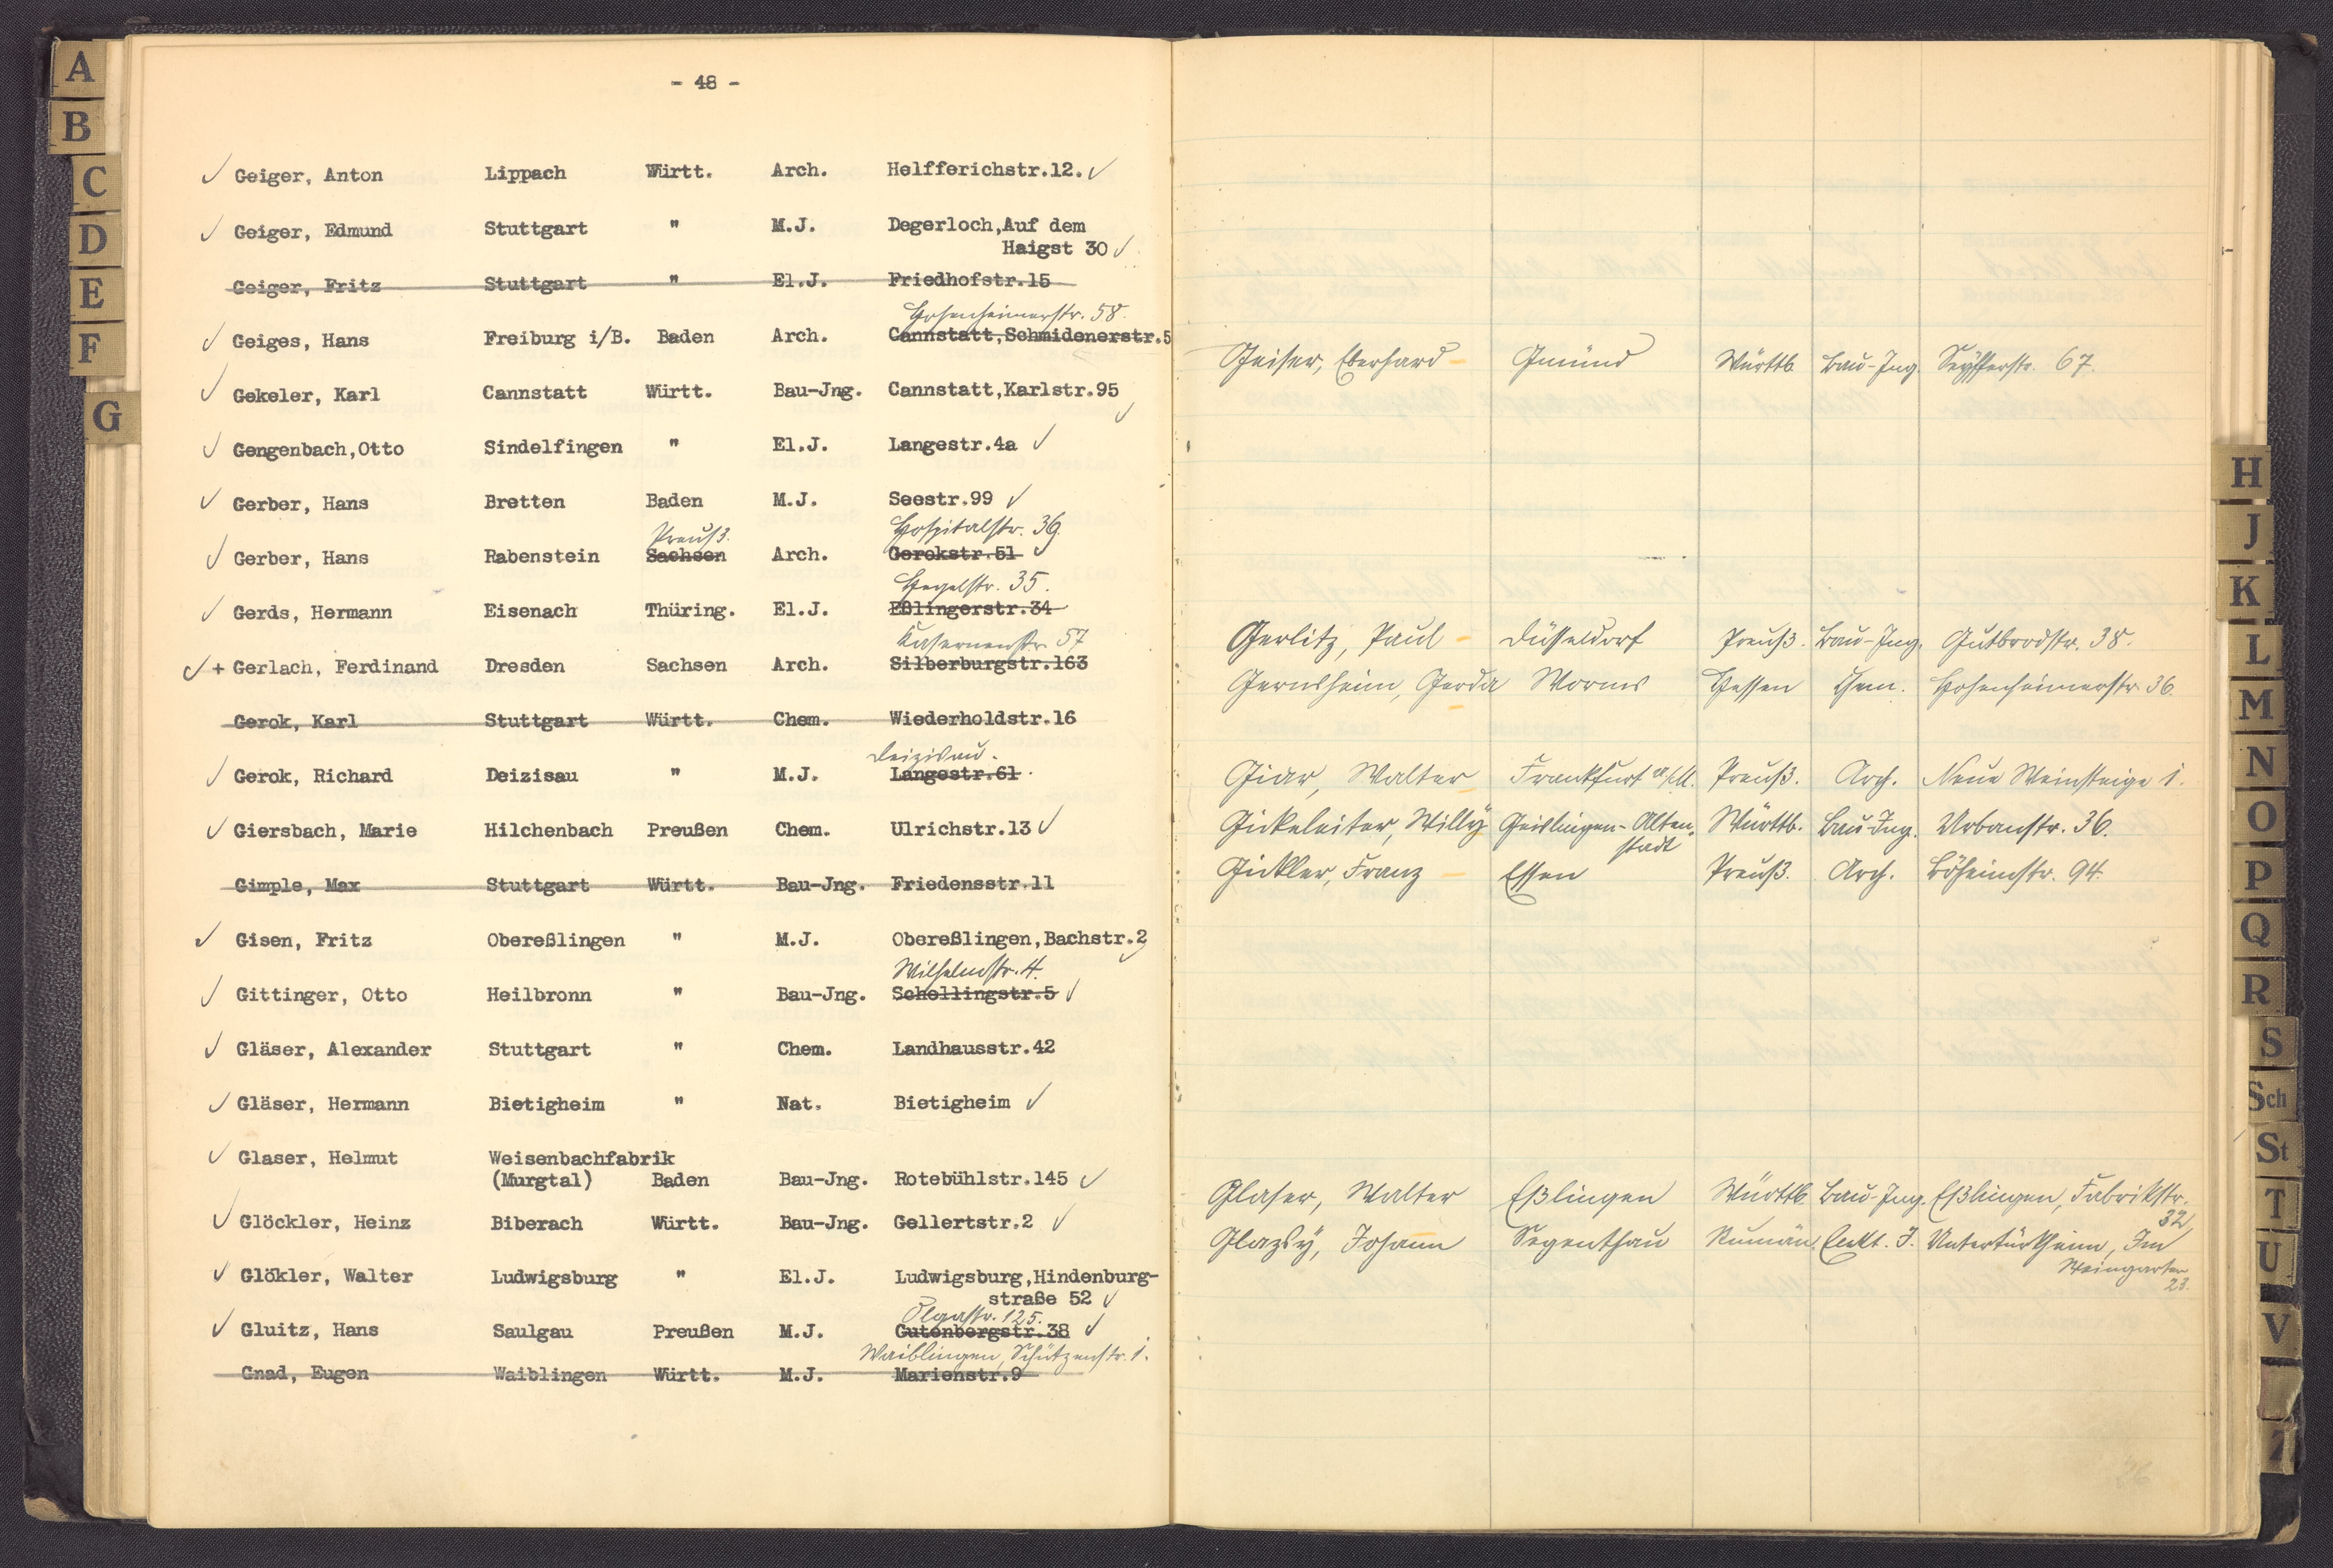 - 48 -
Geiger, Anton Lippach Württ. Arch. Helfferichstr.12.
Geiger, Edmund Stuttgart " M.J. Degerloch,Auf dem
Haigst 30
Geiger, Fritz Stuttgart " El.J. Friedhofstr.15
Hohenheimerstr. 58.
Geiges, Hans Freiburg i/B. Baden Arch. Cannstatt,Schmidenerstr.5
Gekeler, Karl Cannstatt Württ. Bau-Jng. Cannstatt,Karlstr.95
Gengenbach,Otto Sindelfingen " El.J. Langestr.4a
Gerber, Hans Bretten Baden M.J. Seestr.99
Preuß. Hospitalstr. 36
Gerber, Hans Rabenstein Sachsen Arch. Gerokstr.51
Hegelstr. 35.
Gerds, Hermann Eisenach Thüring. El.J. Eßlingerstr.34
Kasernenstr. 57
+ Gerlach, Ferdinand Dresden Sachsen Arch. Silberburgstr.163
Gerok, Karl Stuttgart Württ. Chem. Wiederholdstr.16
Deizisau.
Gerok, Richard Deizisau " M.J. Langestr.61
Giersbach, Marie Hilchenbach Preußen Chem. Ulrichstr.13
Gimple, Max Stuttgart Württ. Bau-Jng. Friedensstr.11
Gisen, Fritz Obereßlingen " M.J. Obereßlingen,Bachstr.2
Wilhelmstr. 4.
Gittinger, Otto Heilbronn " Bau-Jng. Schellingstr.5
Gläser, Alexander Stuttgart " Chem. Landhausstr.42
Gläser, Hermann Bietigheim " Nat. Bietigheim
Glaser, Helmut Weisenbachfabrik
(Murgtal) Baden Bau-Jng. Rotebühlstr.145
Glöckler, Heinz Biberach Württ. Bau-Jng. Gellertstr.2
Glökler, Walter Ludwigsburg " El.J. Ludwigsburg,Hindenburg-
straße 52
Olgastr. 125.
Gluitz, Hans Saulgau Preußen M.J. Gutenbergstr.38
Waiblingen, Schützenstr. 1.
Gnad, Eugen Waiblingen Württ. M.J. Marienstr.9
Geiser, Eberhard Gmünd Württb. Bau-Ing. Seyfferstr. 67.
Gerlitz, Paul Düsseldorf Preuß. Bau-Ing. Gutbrodstr. 38.
Gernsheim, Gerda Worms Hessen Chem. Hohenheimerstr. 36.
Walter Frankfurt a/M. Preuß. Arch. Neue Weinsteige 1.
Gickeleiter, Willy Geislingen-Alten- Württb. Bau-Ing. Urbanstr. 36.
stadt
Gickler, Franz Essen Preuß. Arch. Böheimstr. 94.
Glaser, Walter Eßlingen Württb. Bau-Ing. Eßlingen, Fabrikstr.
32
Johann Segenthau Rumän. I. Untertürkheim, Im
Weingarten
23.
A
B
C
D
E
F
G
H
J
K
L
M
N
O
P
Q
R
S
Sch
St
T
U
V
Z